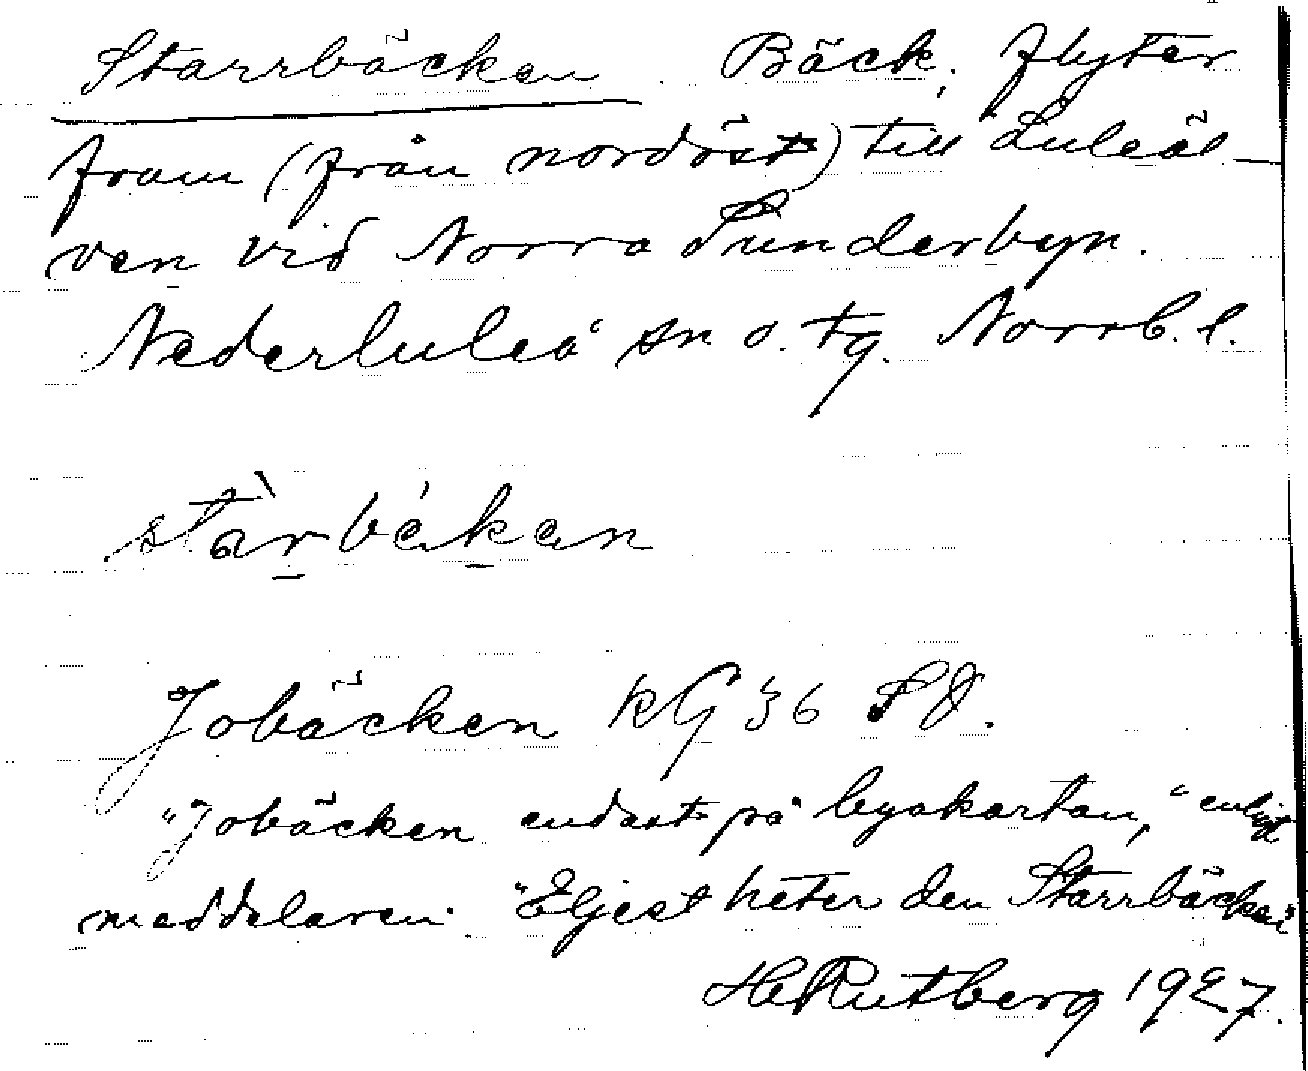 Starrbäcken. Bäck, flyter
fram (från nordöst) till Luleäl-
ven vid Norra Sunderbyn.
Nederluleå sn o. tg. Norrb. l.
Jobäcken KG 36 SV.
"Jobäcken endast på byakartan," enligt
meddelaren. "Eljest heter den Starrbäcken"
H Rutberg 1927.